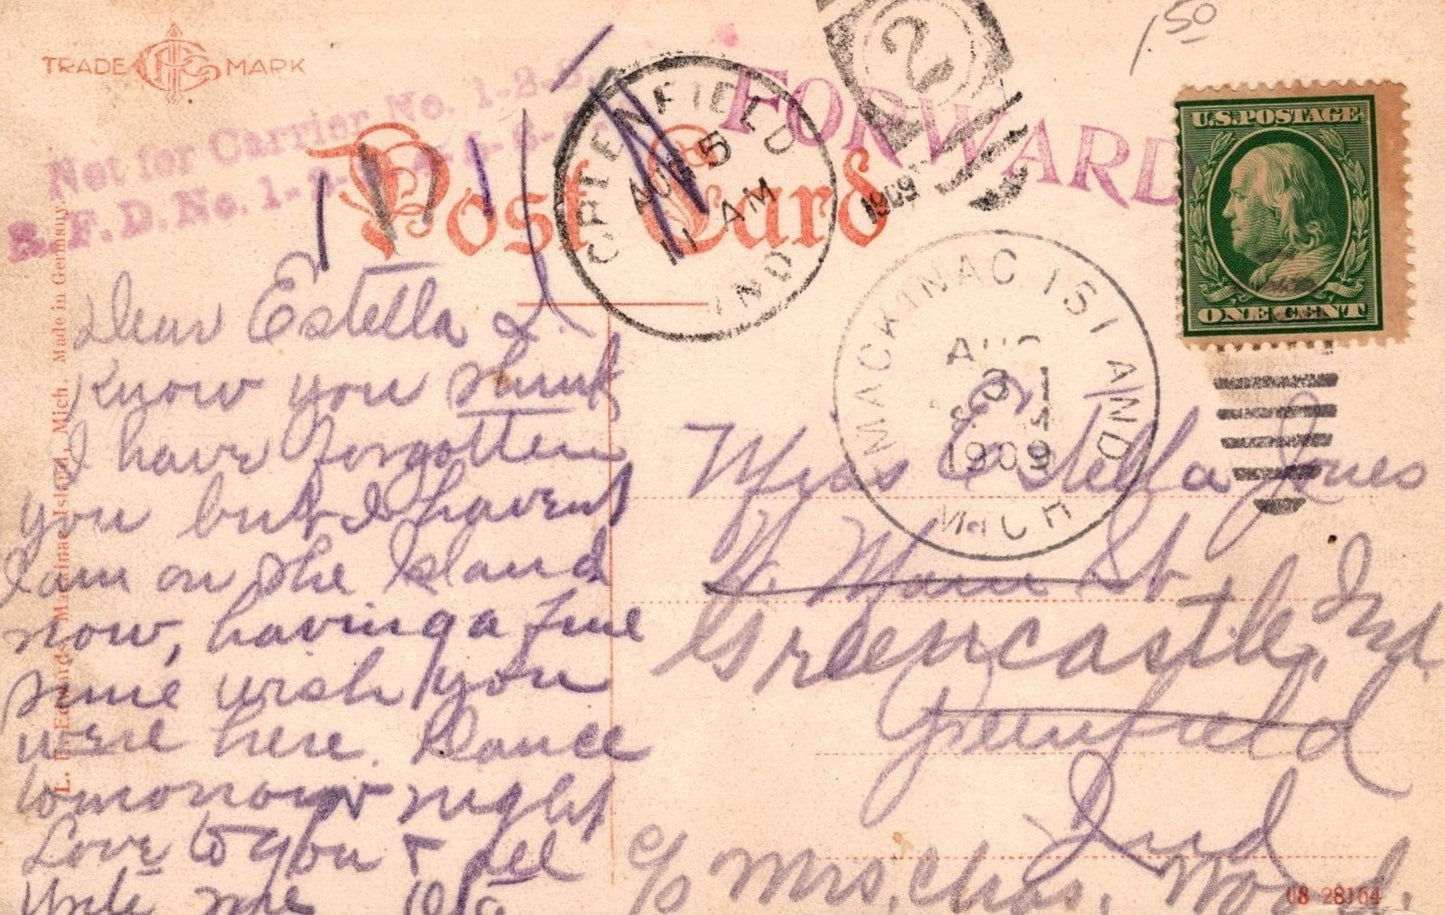 TRADE MARK
Not for Carrier No. 1-2-3-
R.F.D. No. 1-2-3-4-5-6-
Post Card
GREENFIELD
AUG 5
11 AM
1909
IND.
2
FORWARD
1.50
U.S. POSTAGE
ONE CENT
MACKINAC ISLAND
AUG
31
1909
MICH
L. Edwards, Mackinac Island, Mich. Made in Germany.
Dear Estella I.
Know you think
I have forgotten
you but I havent
I am on the Island
now, having a fine
time wish you
were here. Dance
tomorrow night
Love to you & all
Write me
Miss Estella Jones
W. Main St
Greencastle, Ind.
Greenfield
Ind
c/o Mrs. Chas. Wood.
08 28164